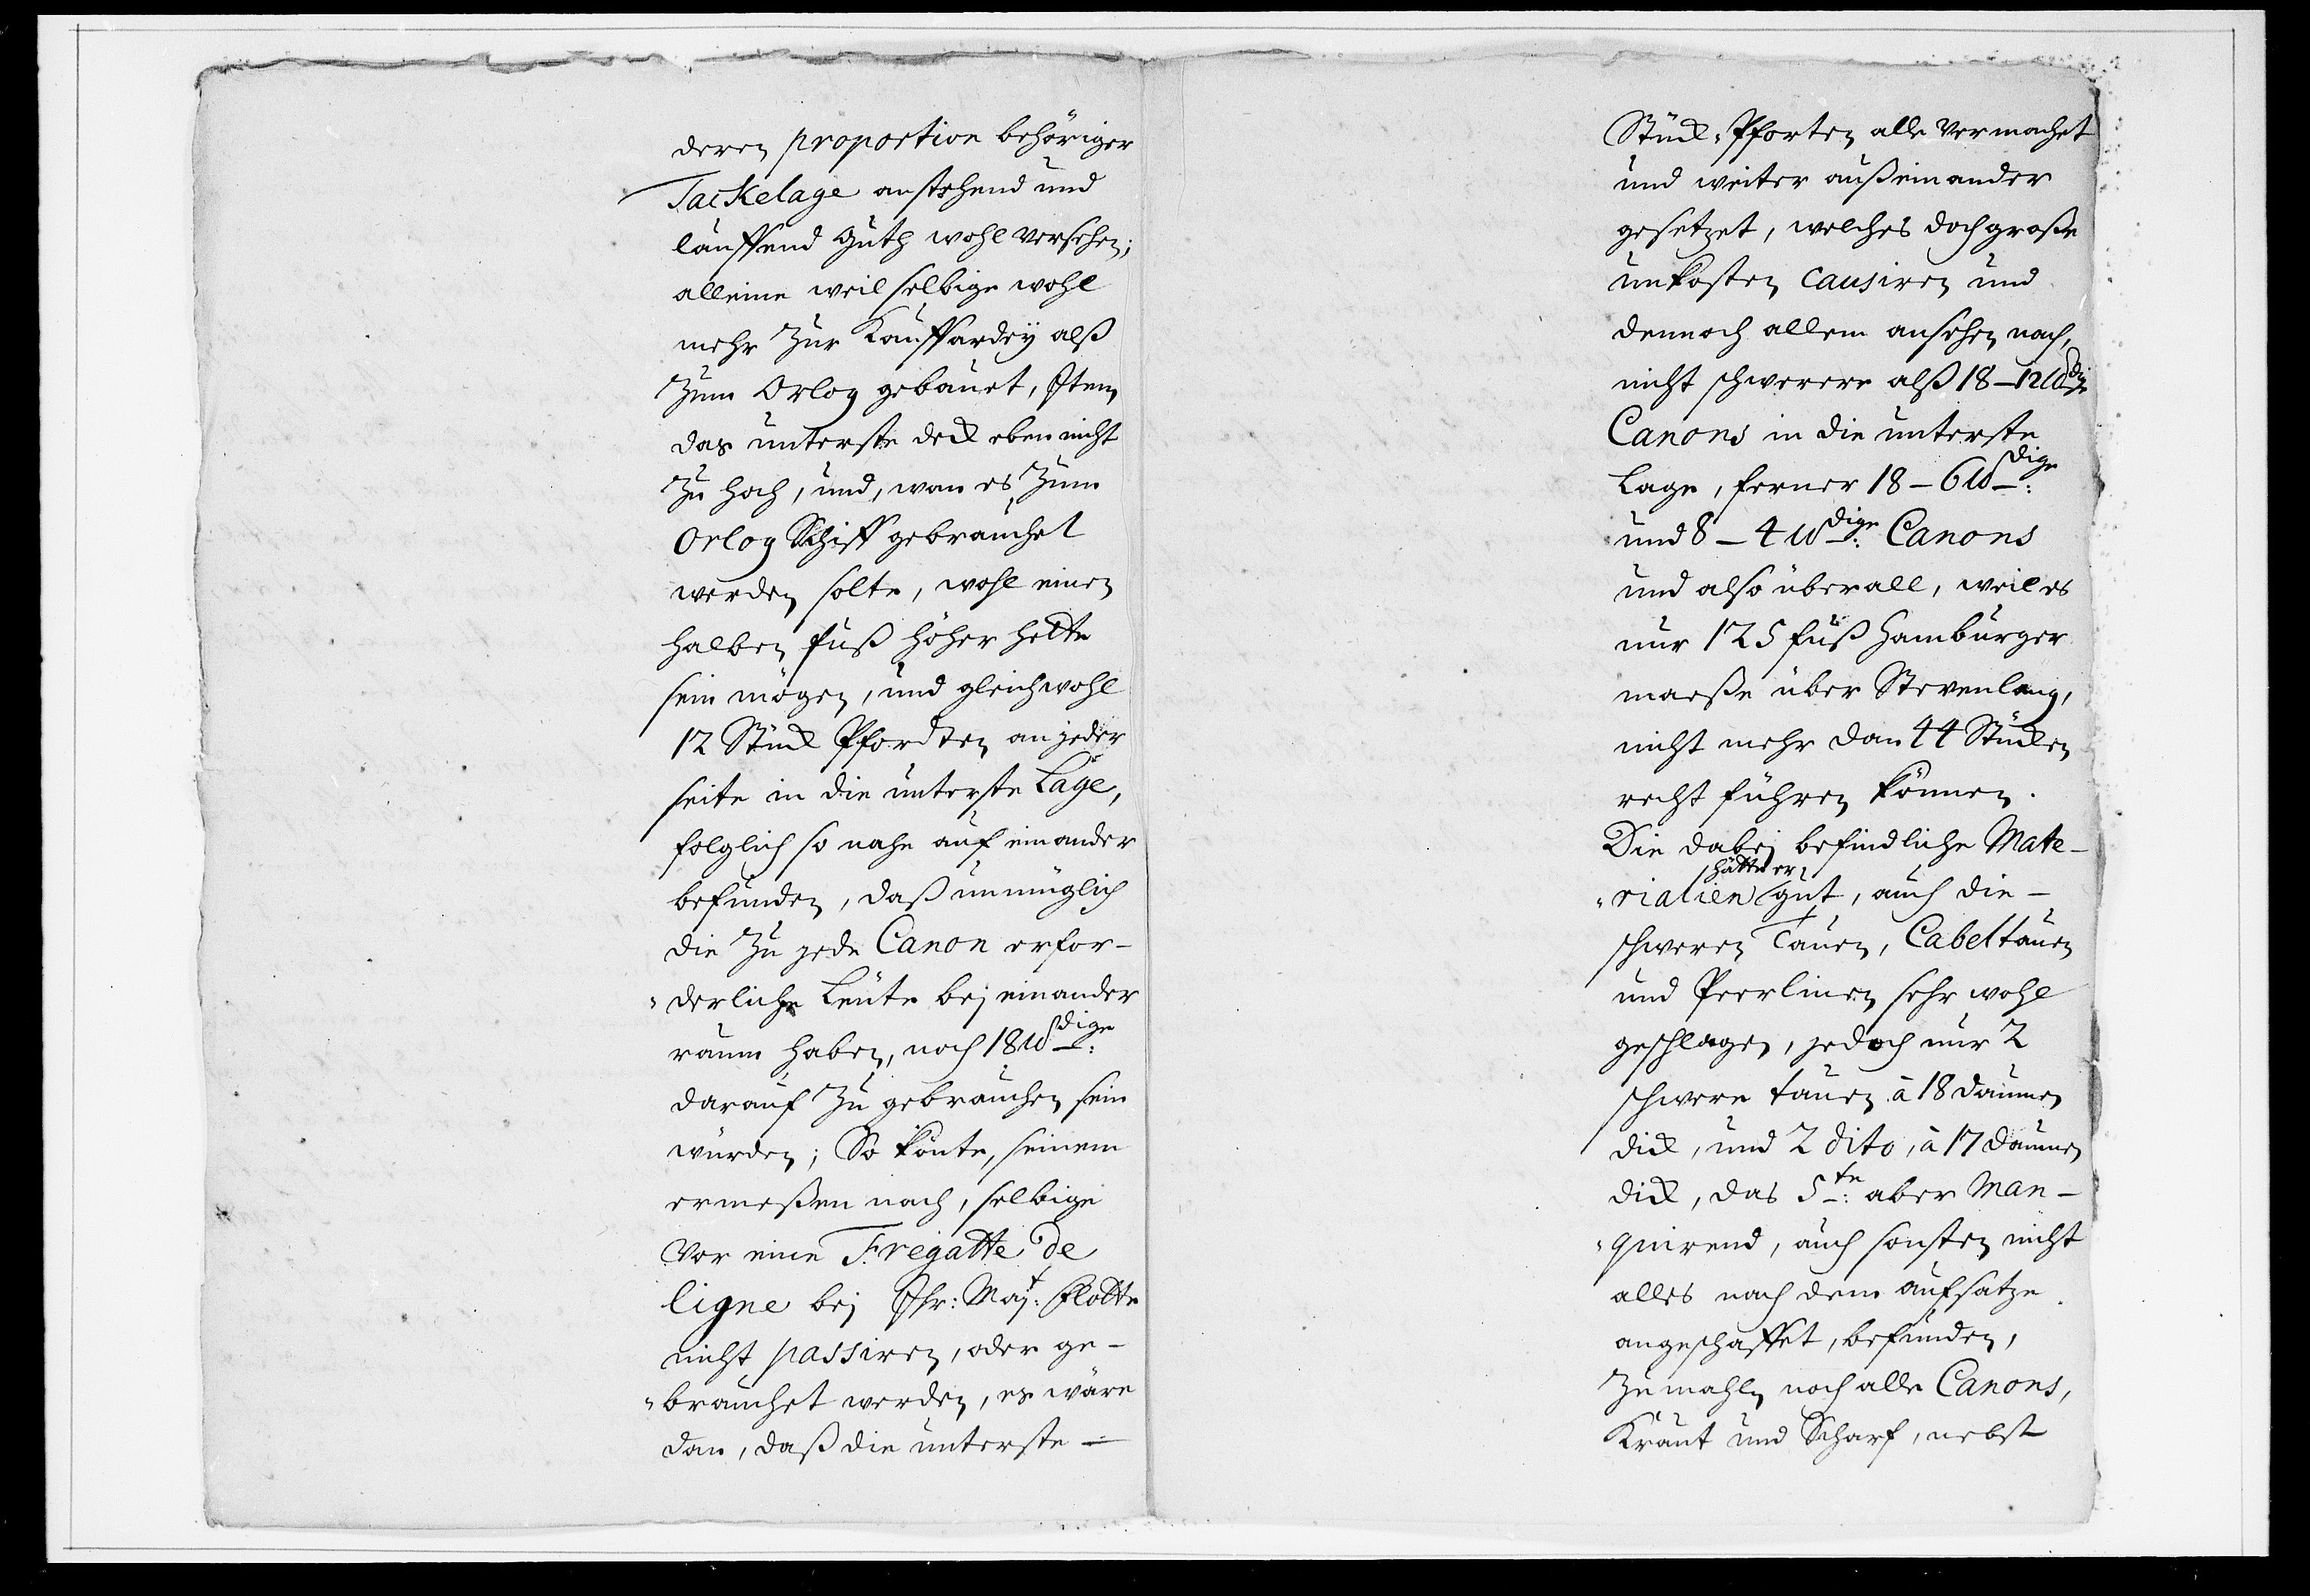 deren proportion behöriger
Tackelage anstehend und
lauffend Guth wohl versehen;
alleine weil selbige wohl
mehr zur Kauffardeÿ alß
zum Orlog gebauet, Item
das unterste deck eben nicht
zu hoch, und, wan es zum
Orlog Schiff gebrauchet
werden solte, wohl einen
halben fuß höher hette
sein mögen, und gleichwohl
12 Stück Pfordten an jeder
seite in die unterste Lage,
folglich so nahe auf einander
befunden, daß unmüglich
die zu jede Canon erfor-
"derliche Leute bej einander
raum haben, noch 18 ℔dige:
darauf zu gebrauchen sein
würden; So könte, seinem
ermeßen nach, selbige
vor eine Fregatte de
ligne bej Ihr: Majt: Flotte
nicht passiren, oder ge-
"brauchet werden, es wäre
dan, daß die unterste -
Stück-Pforten alle vermachet
und weiter außeinander
gesetzet, welches doch große
unkosten causiren und
dennoch allem ansehen nach,
nicht schwerere alß 18 - 12 ℔dige
Canons in die unterste
Lage, ferner 18 - 6 ℔dige:
und 8 - 4 ℔dige: Canons
und also überall, weil es
nur 125 fuß Hamburger
maeße über Steven lang,
nicht mehr dan 44 Stücken
recht führen können.
Die dabej befindliche Mate-
"rialien hätte er gut, auch die -
schweren Tauen, Cabeltauen
und Peerlinen sehr wohl
geschlagen, jedoch nur 2
schwere tauen à 18 daumen
dick, und 2 dito, à 17 daumen
dick, das 5te: aber man-
"quirend, auch sonsten nicht
alles nach dem aufsatze
angeschaffet, befunden,
zumahlen noch alle Canons,
Kraut und Scharf, nebst